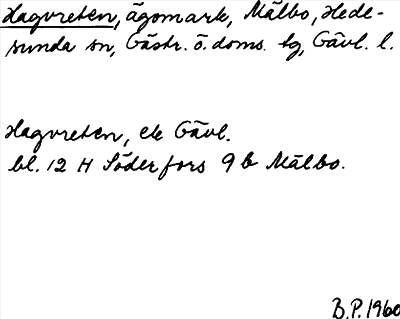 Hagvreten, ägomark, Målbo, Hede-
sunda sn, Gästr. ö. doms. tg, Gävl. l.
Hagvreten, ek Gävl.
bl. 12 H Söderfors 9 b Målbo.
B.P. 1960